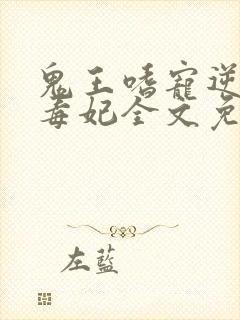 鬼王嗜寵逆
毒妃全文免
左藍